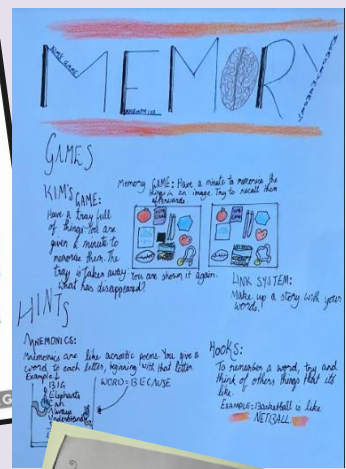 KIM'S GAME
MEMORY
MNEMONICS
GAMES
KIM'S GAME:
Have a tray full
of things. You are
given a minute to
memorise them. The
tray is taken away. You are shown it again.
what has disappeared?
Memory GAME: Have a minute to memorise the
things in an image. Try to recall them
afterwards.
LINK SYSTEM:
Make up a story with your
words.
HINTS
MNEMONICS:
Mnemonics are like acrostic poems. You give a
word to each letter, beginning with that letter.
Example:
BIG
Elephants
Can
Always
Understand
WORD=BECAUSE
HOOKS:
To remember a word, try and
think of others things that its
like.
EXAMPLE: Basketball is like
NETBALL.